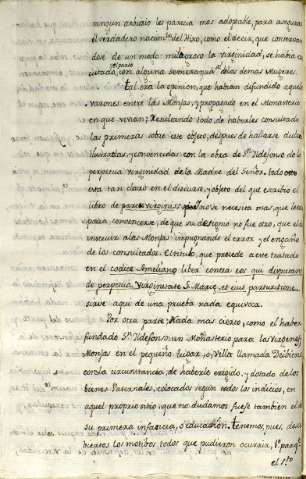 ningun trabajo les parecia mas adoptable, para asegurar
el verdadero nacim.to del Hixo, como el decir, que conservan
dose de un modo milagroso la virginidad, se havia
con alguna demas Mugeres.
Tal era la opinion, que habian difundido aquellos
varones entre las Monjas, y propagado en el Monasterio
en que vivian; Resultando todo de haberles consultado
las primeras sobre este objeto, despues de hallarse dulce
y convencidas con la obra de S.n Ildefonso de
perpetua Virginidad de la Madre del Señor. todo esto
esta tan claro en el discurso, y objeto del que escribio el
libro de partu virginis que no se necesita mas que leerlo
para convencerse, de que su designio no fue otro, que el
instruir a las Monjas impugnando el error, y el engaño
de los consultados. El titulo, que precede a este tratado
en el codice Ameliano liber contra eos qui disputant
de perpetua Virginitate S. Mariæ, et eius parturitione,
sirve aqui de una prueba nada equivoca.
Por otra parte: Nada mas cierto, como el haber
fundado S.n Ildefonso un Monasterio para las Virgenes
Monjas en el pequeño lugar, o, Villa llamada Deibiense
con la circunstancia, de haberle erigido, y dotado de los
bienes Paternales, colocados segun todos los indicios, en
aquel proprio sitio, que no dudamos fuese tambien el de
su primera infancia, o educacion. tenemos, pues, des
cubiertos los motivos todos que pudieron ocurrir, p.a para q.e
el S.to